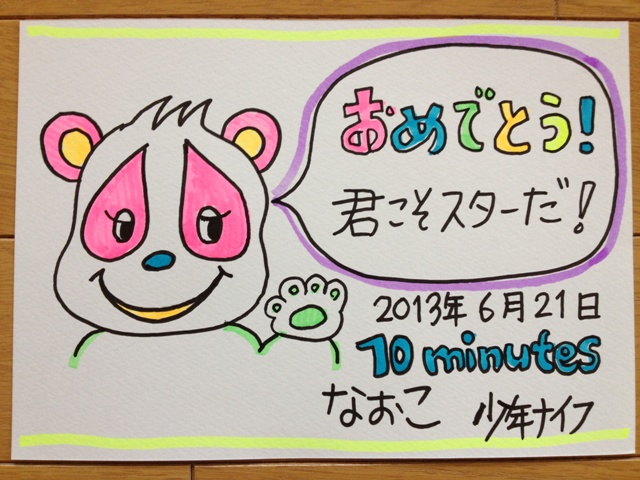 おめでとう!
君こそスターだ!
2013年6月21日
10 minutes
なおこ 少年ナイフ